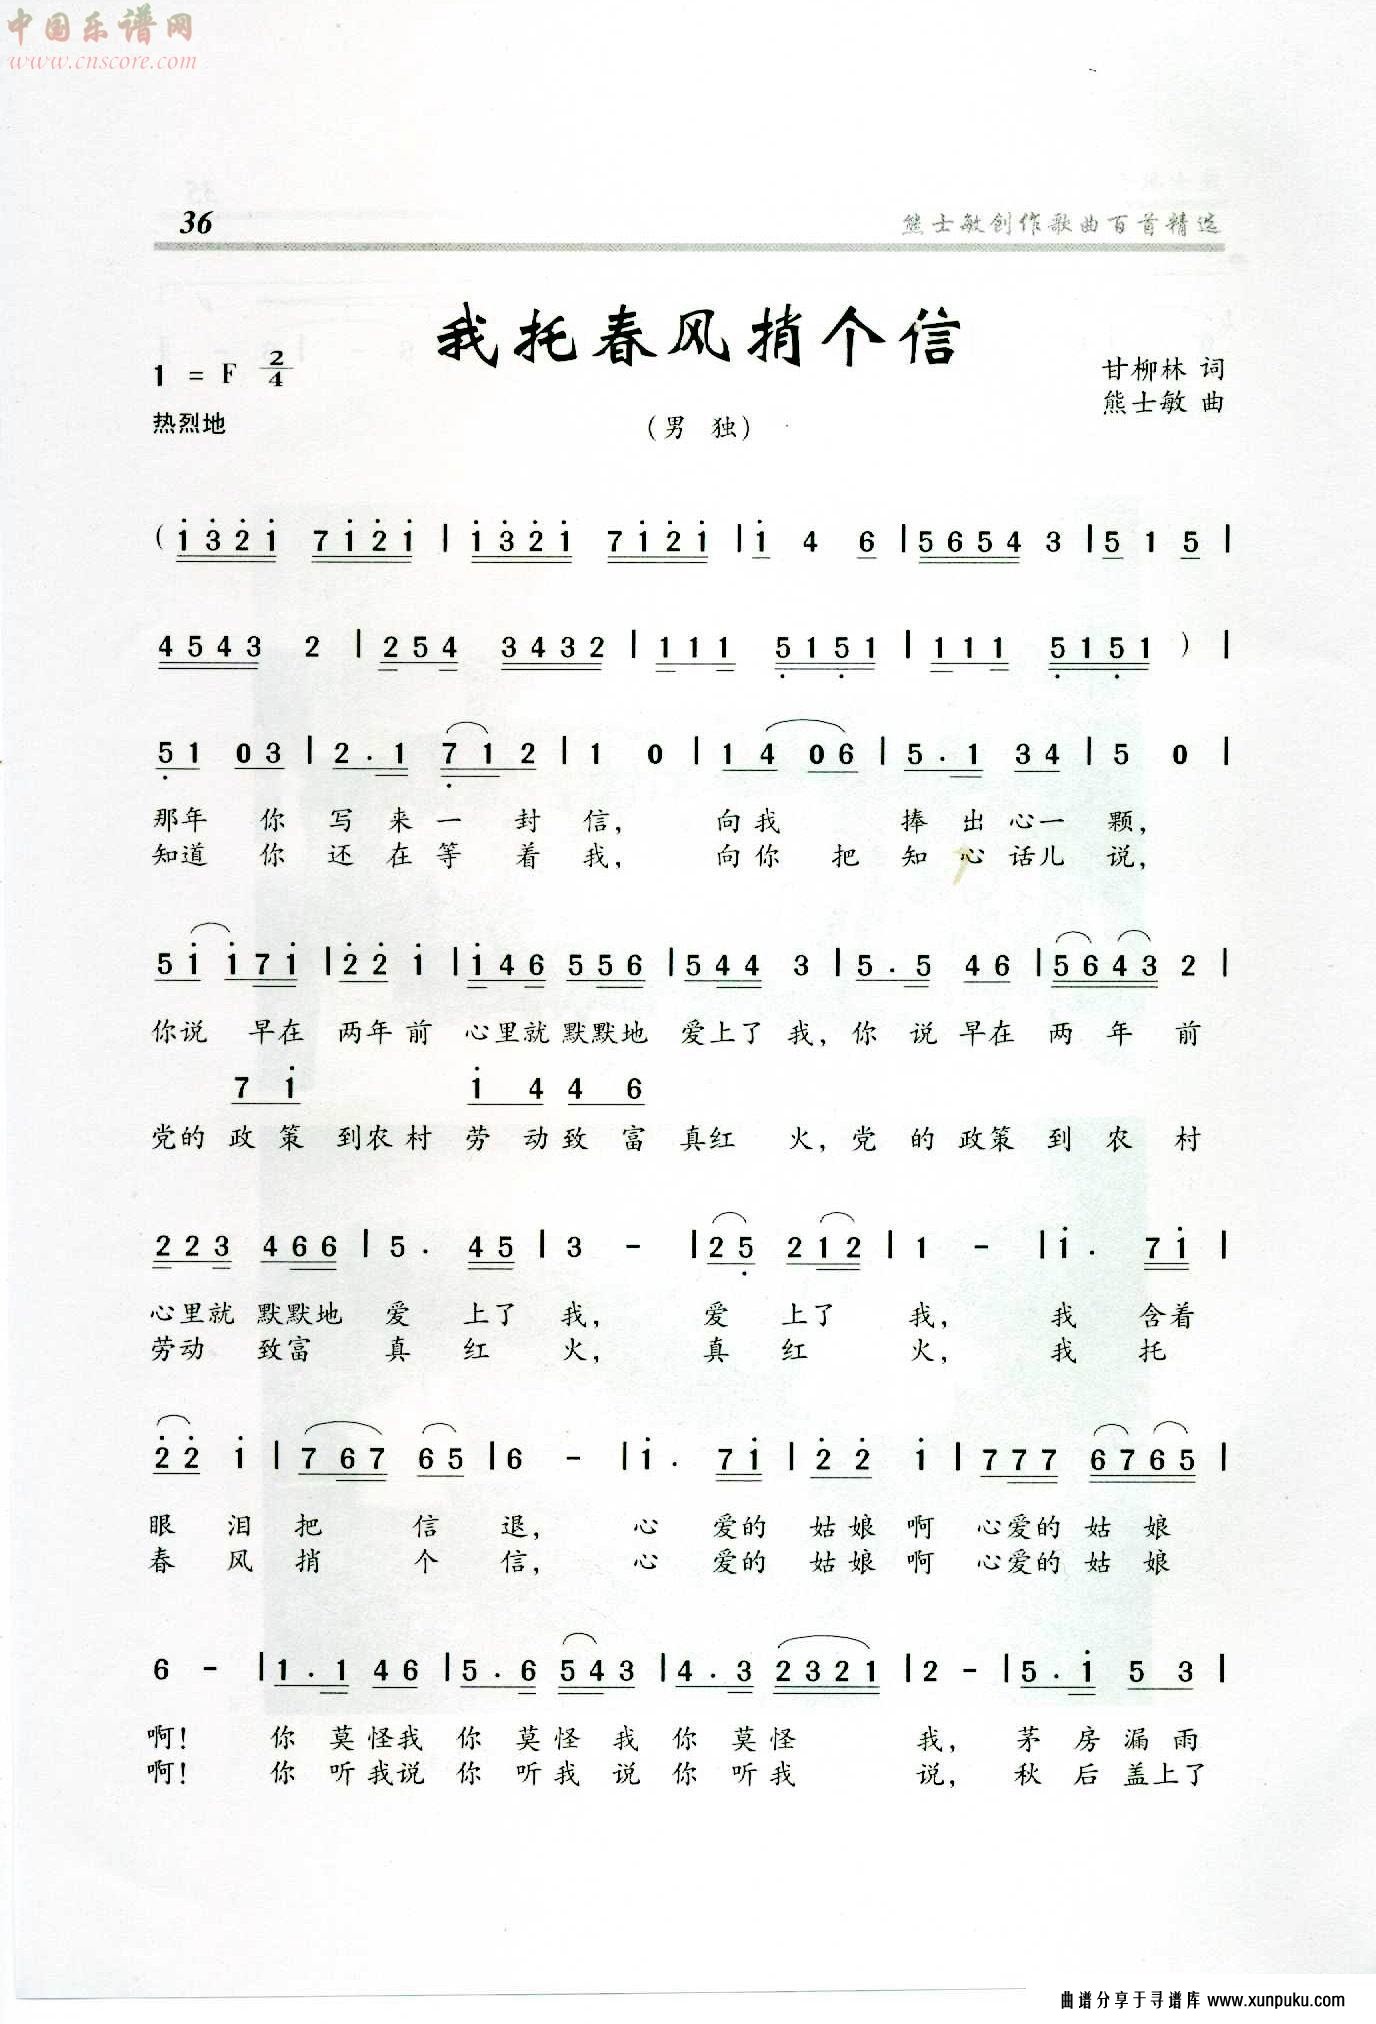 中国乐谱网
www.cnscore.com
36 熊士敏创作歌曲百首精选
我托春风捎个信
1 = F 2/4
甘柳林 词
热烈地
(男 独)
熊士敏 曲
( i̇ 3̇ 2̇ i̇ 7 i̇ 2̇ i̇ | i̇ 3̇ 2̇ i̇ 7 i̇ 2̇ i̇ | i̇ 4 6 | 5 6 5 4 3 | 5 1 5 |
4 5 4 3 2 | 2 5 4 3 4 3 2 | 1 1 1 5̣ 1 5̣ 1 | 1 1 1 5̣ 1 5̣ 1 ) |
5̣ 1 0 3 | 2 . 1 7̣ 1 2 | 1 0 | 1 4 0 6 | 5 . 1 3 4 | 5 0 |
那年 你 写 来 一 封 信, 向我 捧 出 心一 颗,
知道 你 还 在 等 着 我, 向你 把 知 心 话儿 说,
5 i̇ i̇ 7 i̇ | 2̇ 2̇ i̇ | i̇ 4 6 5 5 6 | 5 4 4 3 | 5 . 5 4 6 | 5 6 4 3 2 |
你说 早在 两年 前 心里就 默默地 爱上了 我, 你 说 早在 两 年 前
7 i̇ i̇ 4 4 6
党的 政 策 到农 村 劳 动 致 富 真红 火, 党 的 政策 到 农 村
2 2 3 4 6 6 | 5 . 4 5 | 3 - | 2 5̣ 2 1 2 | 1 - | i̇ . 7 i̇ |
心里就 默默地 爱 上了 我, 爱 上了 我, 我 含着
劳动 致富 真 红 火, 真 红 火, 我 托
2̇ 2̇ i̇ | 7 6 7 6 5 | 6 - | i̇ . 7 i̇ | 2̇ 2̇ i̇ | 7 7 7 6 7 6 5 |
眼 泪 把 信 退, 心 爱的 姑 娘 啊 心爱的 姑 娘
春 风 捎 个 信, 心 爱的 姑 娘 啊 心爱的 姑 娘
6 - | 1 . 1 4 6 | 5 . 6 5 4 3 | 4 . 3 2 3 2 1 | 2 - | 5 . i̇ 5 3 |
啊! 你 莫 怪我 你 莫 怪 我 你 莫 怪 我, 茅 房 漏 雨
啊! 你 听 我说 你 听 我 说 你 听 我 说, 秋 后 盖上了
曲谱分享于寻谱库 www.xunpuku.com